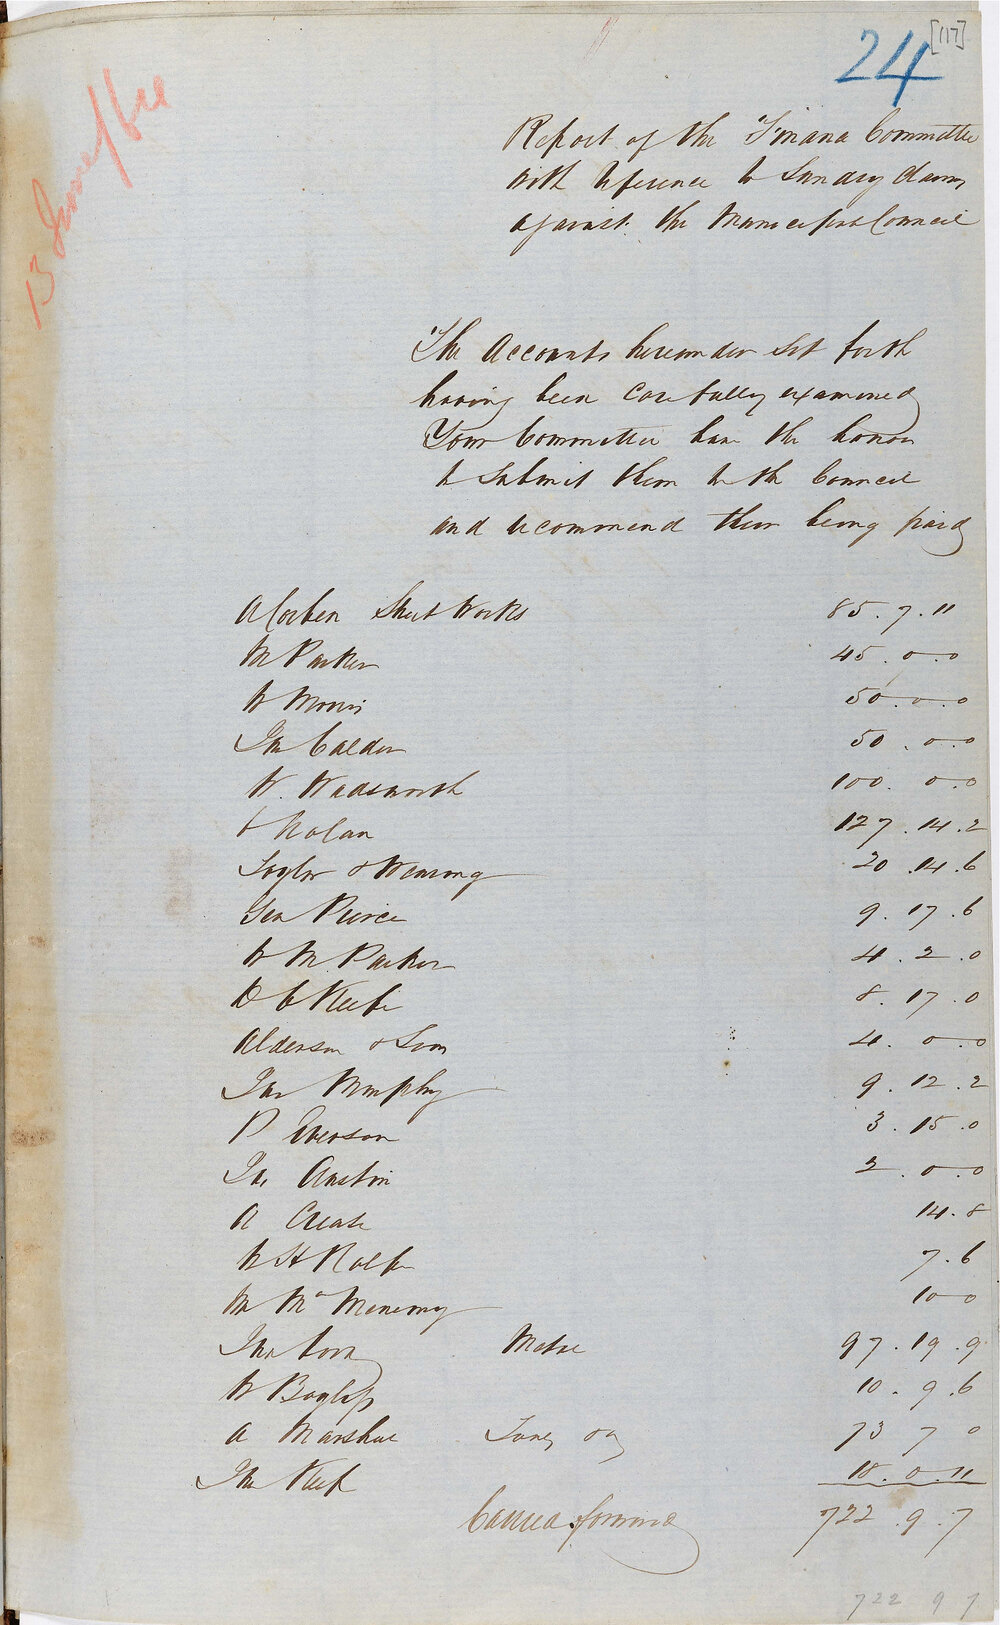 24 [117]
13
Report of the Finance Committee
with reference to Sundry Claims
against the Municipal Council
The Accounts hereunder set forth
having been carefully examined
Your Committee have the honor
to submit them to the Council
and recommend their being paid
A Corben Street Works 85.7.11
M Parker 45.0.0
W Morris 50.0.0
Jas Calder 50.0.0
W. Wadsworth 100.0.0
Nolan 127.14.2
Taylor & Wearing 20.14.6
Geo Pierce 9.17.6
W M Parker 4.2.0
D O Keefe 8.17.0
Alderson & Sons 4.0.0
Jas Murphy 9.12.2
P Everson 3.15.0
Jas Austin 2.0.0
A 14.8
W H Rolfe 7.6
M McMenemy 10 0
Jno Metal 97.19.9
W 10.9.6
A Marshall 73 7 0
Jno Keefe 18.0.11
Carried forward 722.9.7
722 9 7